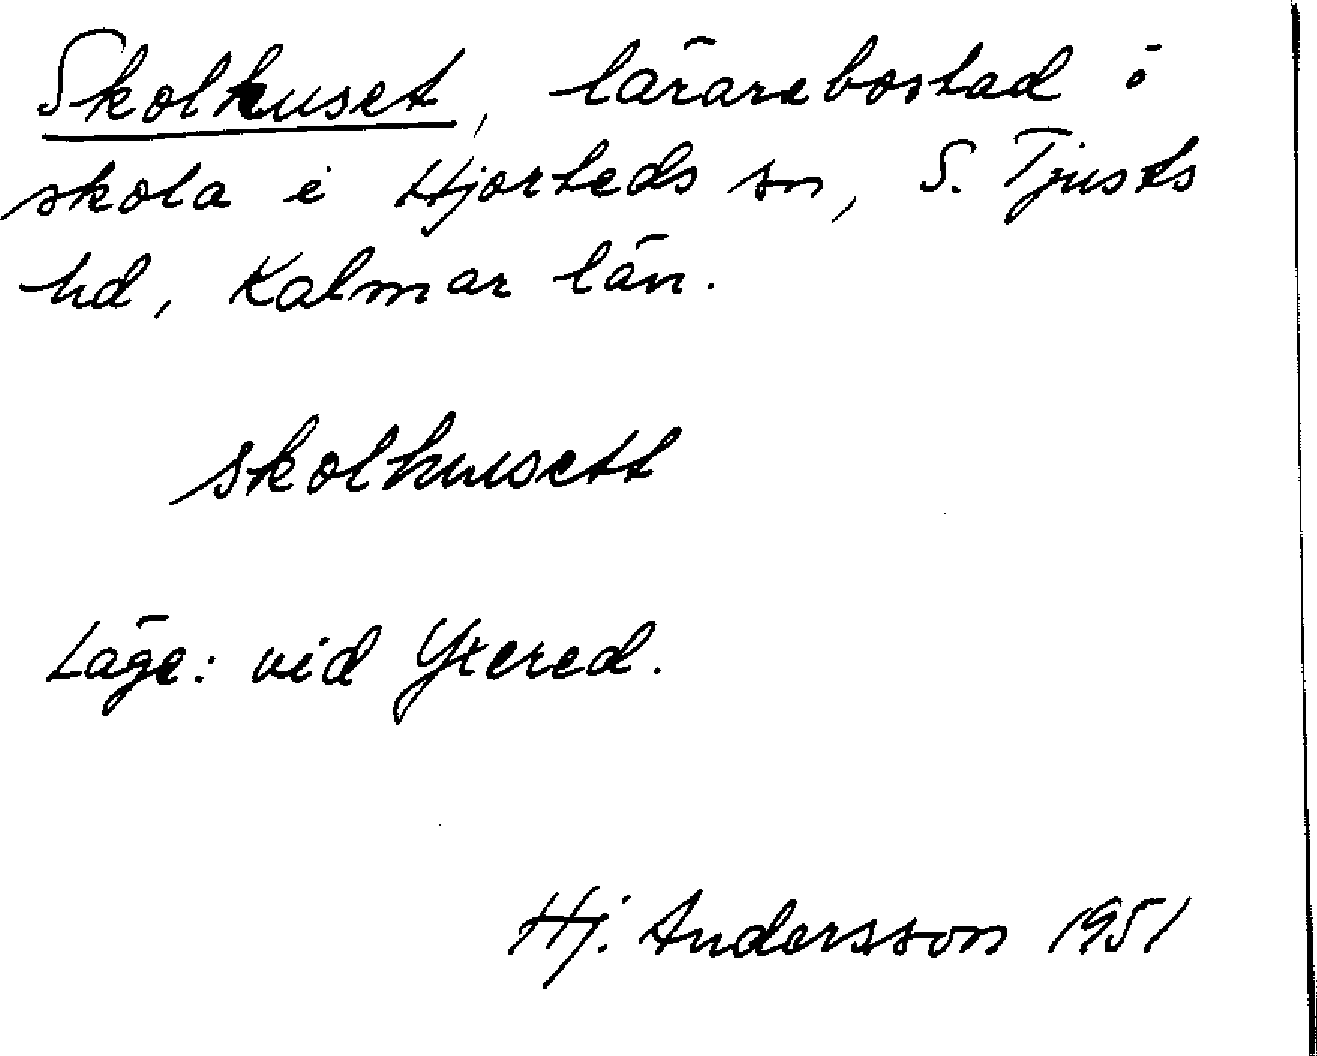 Skolhuset, lärarebostad ö
skola i Hjorteds sn, S. Tjusts
hd, Kalmar län.
skolhusett
Läge: vid Ytered.
Hj. Andersson 1951